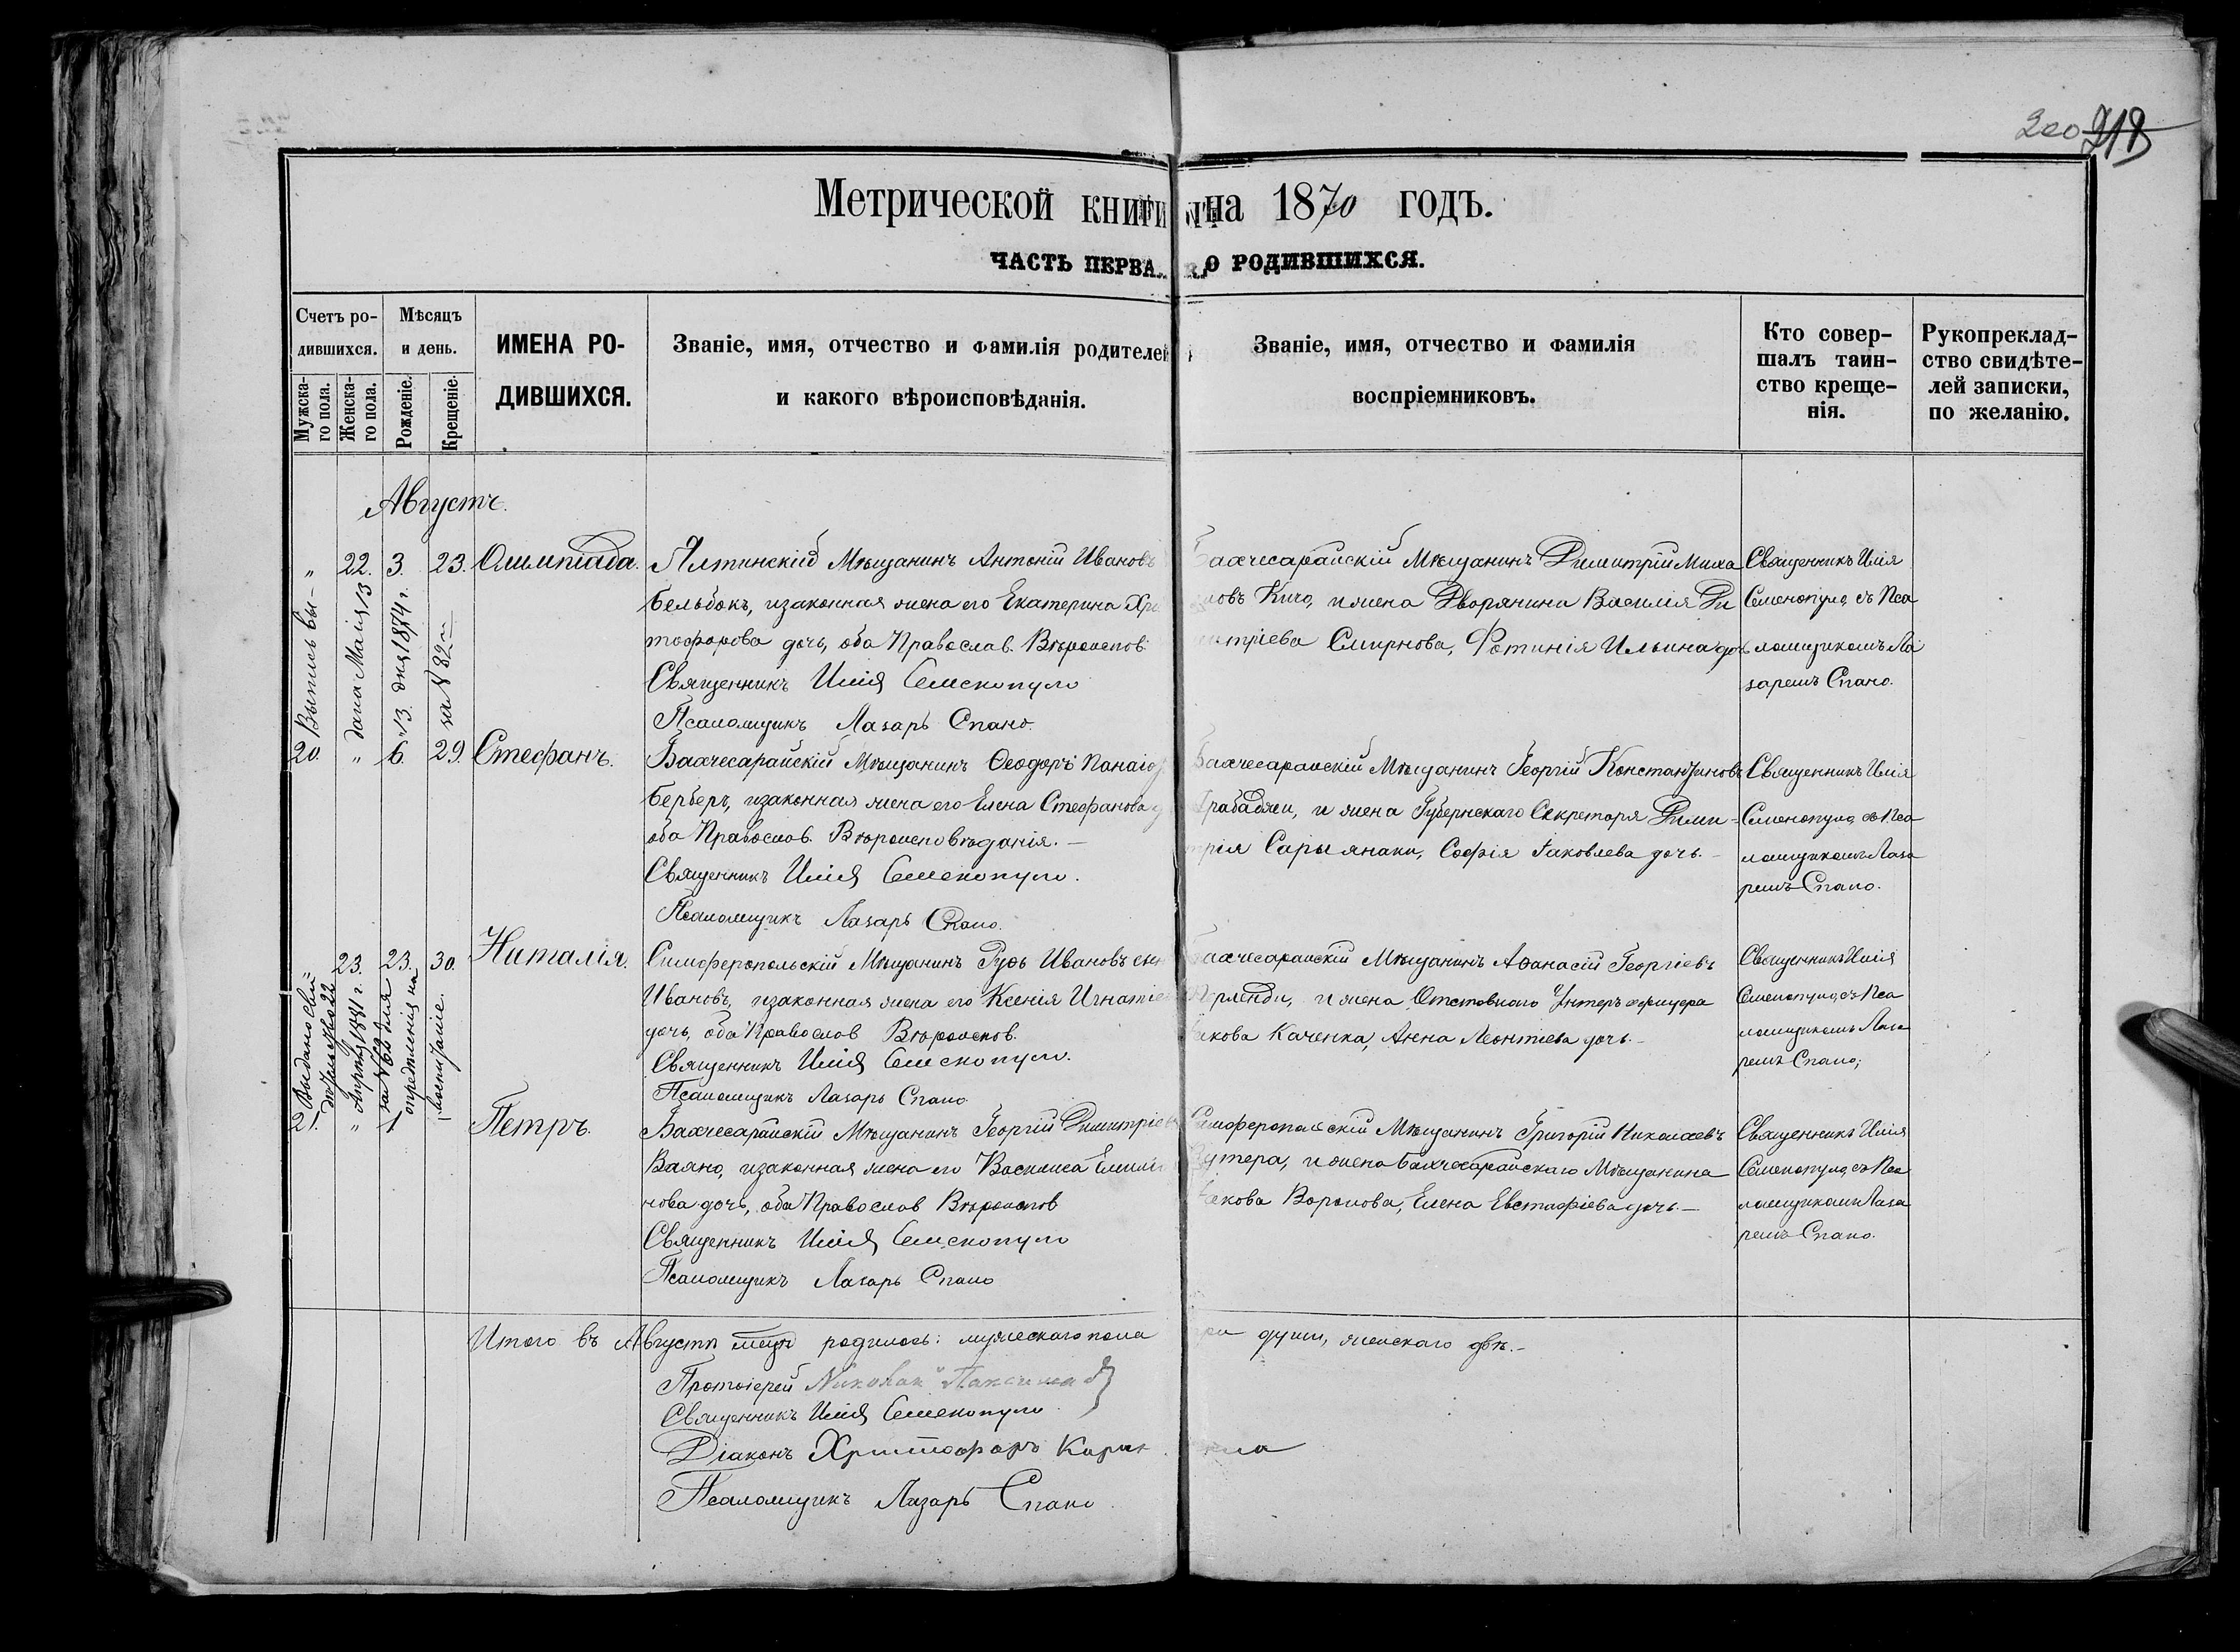 200 218
Метрической книги на 1870 годъ.
ЧАСТЬ ПЕРВА О РОДИВШИХСЯ.
Счетъ ро-
дившихся.
Мужска-
го пола.
Женска-
го пола.
Мѣсяцъ
и день.
Рожденіе.
Крещеніе.
ИМЕНА РО-
ДИВШИХСЯ.
Званіе, имя, отчество и фамилія родителей
и какого вѣроисповѣданія.
Званіе, имя, отчество и фамилія
воспріемниковъ.
Кто совер-
шалъ таин-
ство креще-
нія.
Рукопреклад-
ство свидѣте-
лей записки,
по желанію.
Августъ.
" 22. 3. 23. Олимпіада.
Выпись вы-
дана Маія 13
13 дня 1874 г.
за № 82
Ялтинскій Мѣщанинъ Антоній Ивановъ
Бельбокъ, изаконная жена его Екатерина Хри
тофорова дочь, оба Православ. Вѣроиспов.
Священникъ Илія Семенопуло
Псаломщикъ Лазарь Спано.
Бахчесарайскій Мѣщанинъ Димитрій Миха
ловъ Кичо, и жена Дворянина Василія Ди
митріева Смирнова, Фотинія Ильина доч.
Священникъ Илія
Семенопуло, съ Пса
ломщикомъ Ла
заремъ Спано.
20. " 6. 29. Стефанъ.
Бахчесарайскій Мѣщанинъ Ѳеодоръ Панаіо
Берберъ, изаконная жена его Елена Стефанова д
оба Православ. Вѣроисповѣданія. —
Священникъ Илія Семенопуло.
Псаломщикъ Лазарь Спано.
Бахчесарайскій Мѣщанинъ Георгій Константиновъ
Арабаджи, и жена Губернскаго Секретаря Дими-
трія Сарыянаки, Софія Іаковлева дочь. —
Священникъ Илія
Семенопуло, съ Пса
ломщикомъ Лаза
ремъ Спано.
" 23. 23. 30. Наталія.
Выдано сви
дѣтельство 22
Апрѣля 1881 г.
за № 60 для
опредѣленія на
воспитаніе.
Симферопольскій Мѣщанинъ Руфъ Ивановъ сын
Ивановъ, изаконная жена его Ксенія Игнатіе
дочь, оба Православ Вѣроиспов.
Священникъ Илія Семенопуло.
Псаломщикъ Лазарь Спано
Бахчесарайскій Мѣщанинъ Аѳанасій Георгіевъ
и жена Отставнаго Унтеръ офицера
Іакова Каченка, Анна Леонтіева дочь. —
Священникъ Илія
Семенопуло, съ Пса
ломщикомъ Лаза
ремъ Спано;
21. " 1 1 Петръ.
Бахчесарайскій Мѣщанинъ Георгій Димитріевъ
Ваяно, изаконная жена его Василиса Емилі
нова дочь, оба Православ Вѣроиспов
Священникъ Илія Семенопуло
Псаломщикъ Лазарь Спано
Симферопольскій Мѣщанинъ Григорій Николаевъ
и жена Бахчесарайскаго Мѣщанина
Іакова Воронова, Елена Евстафіева дочь. —
Священникъ Илія
Семенопуло, съ Пса
ломщикомъ Лаза
ремъ Спано.
Итого въ Августѣ родилось: мужескаго пола три души, женскаго двѣ. —
Протоіерей Николай
Священникъ Илія Семенопуло
Діаконъ Христофоръ
Псаломщикъ Лазарь Спано